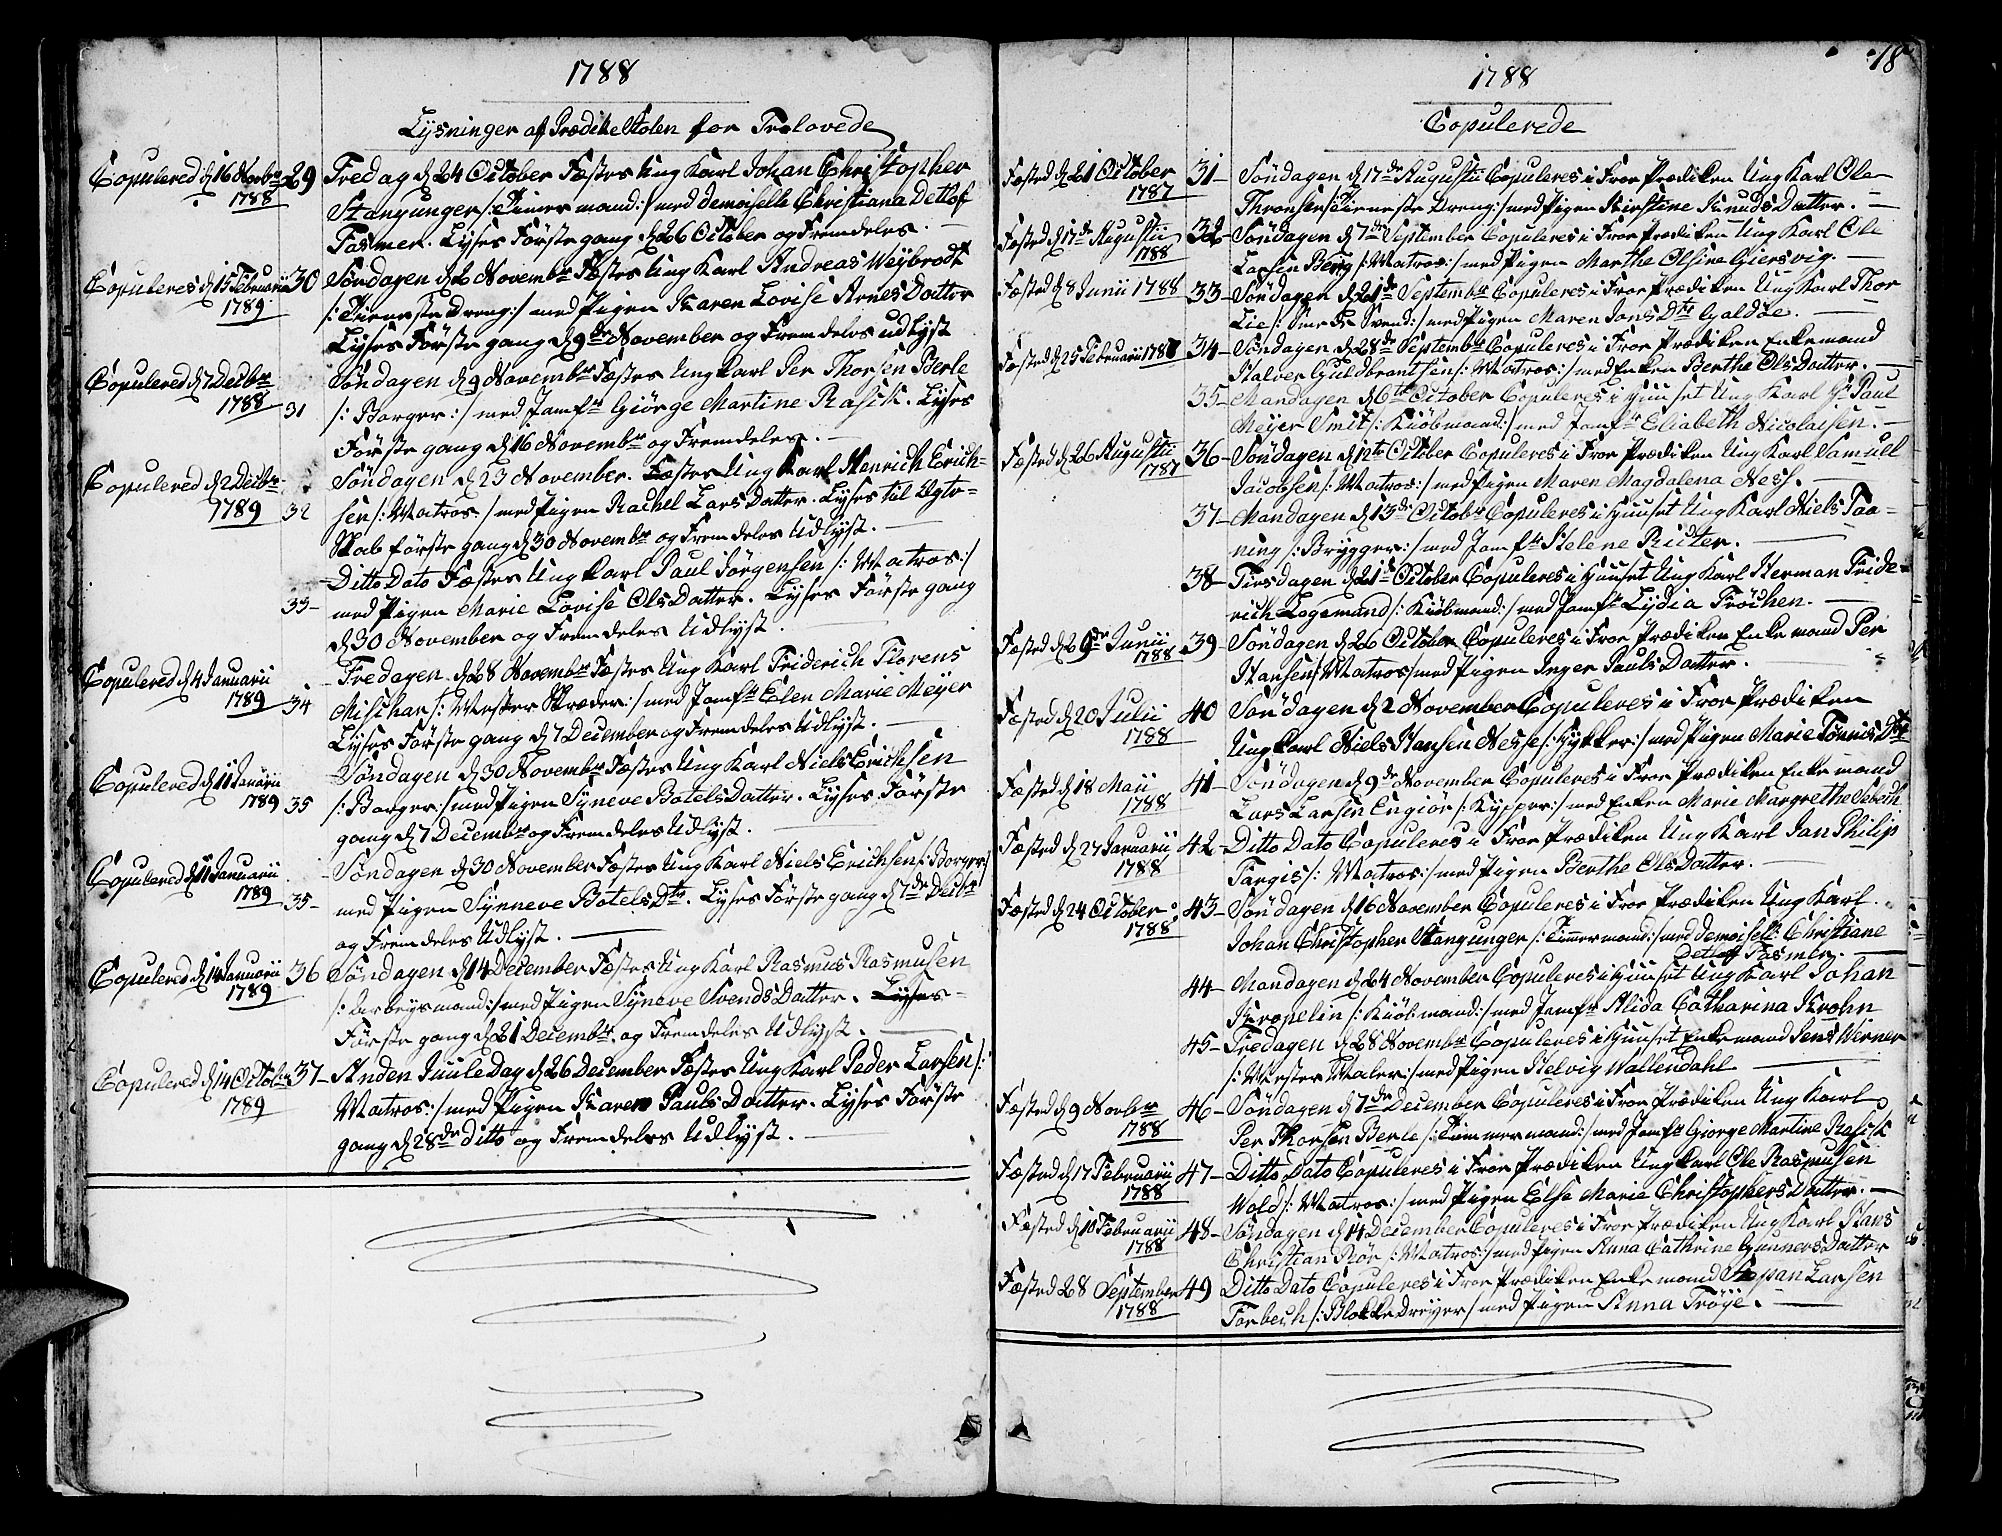 1788
Lysninger af Prædikestolen for Trolovede
Copulered d 16 Novbr 1788
29 Fredag d 24 October Fæstes Ung Karl Johan Christopher
Stangunger /: Timermand :/ med demoiselle Christiana Detlof
Fasmer. Lyses Første gang d 26 October og Fremdeles.
Copuleres d 15 Februarii 1789
30 Søndagen d 2 Novembr Fæstes Ung Karl Andreas Weybrodt
/: Tieneste Dreng :/ med Pigen Karen Lovise Arnes Datter
Lyses Første gang d 9de November og Fremdeles udlyst
Copulered d 7 Decbr 1788
31 Søndagen d 9 Novembr Fæstes Ung Karl Per Thorsen Berle
/: Borger :/ med Jomfr Giørge Martine Rasch. Lyses
Første gang d 16 Novembr og Fremdeles.
Copulered d 2 Decbr 1789
32 Søndagen d 23 November. Fæstes Ung Karl Henrich Erich-
sen /: Matros :/ med Pigen Rachel Lars Datter. Lyses til Ægte-
skab første gang d 30 Novembr og Fremdeles Udlyst.
33- Ditto Dato Fæstes Ung Karl Paul Jørgensen /: Matros :/
med Pigen Marie Lovise Ols Datter. Lyses Første gang
d 30 November og Fremdeles Udlyst.
Copulered d 4 Januarii 1789
34 Fredagen d 28 Novembr Fæstes Ung Karl Friderich Florens
Mischar /: Mester Skræder :/ med Jomfr Elen Marie Meyer
Lyses Første gang d 7 December og Fremdeles Udlyst.
Copulered d 11 Januarii 1789
35 Søndagen d 30 Novembr Fæstes Ung Karl Niels Erichsen
/: Borger :/ med Pigen Syneve Botels Datter. Lyses Første
gang d 7 Decembr og Fremdeles Udlyst.
Copulered d 11 Januarii 1789
35- Søndagen d 30 November Fæstes Ung Karl Niels Erichsen /: Borger :/
med Pigen Synneve Botels Dtr. Lyses Første gang d 7de Decbr
og Fremdeles Udlyst.
Copulered d 14 Januarii 1789
36 Søndagen d 14 December Fæstes Ung Karl Rasmus Rasmusen
/: Arbeysmand :/ med Pigen Syneve Svends Datter. Lyses
Første gang d 21 Decembr. og Fremdeles Udlyst.
Copulered d 14 October 1789
37- Anden Juule Dag d 26 December Fæstes Ung Karl Peder Larsen /:
Matros :/ med Pigen Karen Pauls Datter. Lyses Første
gang d 28de Ditto og Fremdeles Udlyst.
18
1788
Copulerede
Fæsted d 21 October 1787
31- Søndagen d 17de Augustii Copuleres i Froe Prædiken Ung Karl Ole
Thronsen /: Tieneste Dreng :/ med Pigen Kirstine Knuds Datter.
Fæsted d 17de Augustii 1788
32- Søndagen d 7de September Copuleres i Froe Prædiken Ung Karl Ole
Larsen Berg /: Matros :/ med Pigen Marthe Olsine Giersvig.
Fæsted d 8 Junii 1788
33- Søndagen d 21de Septembr Copuleres i Froe Prædiken Ung Karl Thor
Lie /: Smede Svend :/ med Pigen Maren Jons Dtr Galdie.
Fæsted d 25 Februarii
34- Søndagen d 28de Septembr Copuleres i Froe Prædiken Enkemand
Halver Guldbrantsen /: Matros :/ med Enken Berthe Ols Datter.
35- Mandagen d 6te October Copuleres i Huuset Ung Karl Hr Paul
Meyer Smit /: Kiøbmand :/ med Jomfr Eliabeth Nicolaisen.
Fæsted d 26 Augustii 1787
36- Søndagen d 12te October Copuleres i Froe Prædiken Ung Karl Samuel
Jacobsen /: Matros :/ med Pigen Maren Magdalena Ness.
37- Mandagen d 13de Octobr Copuleres i Huuset Ung Karl Niels Faa-
ning /: Brygger :/ med Jomfr Helene Ruter.
38- Tirsdagen d 21de October Copuleres i Huuset Ung Karl Herman Fride-
rich Logemand /: Kiøbmand :/ med Jomfr Lydia Frochen.
Fæsted d 29de Junii 1788
39- Søndagen d 26 October Copuleres i Froe Prædiken Enkemand Per
Hansen /: Matros :/ med Pigen Inger Pauls Datter.
Fæsted d 20 Julii 1788
40 Søndagen d 2 November Copuleres i Froe Prædiken
Ung Karl Niels Hansen Nesse /: :/ med Pigen Marie Tønnis Dtr
Fæsted d 18 Maii 1788
41- Søndagen d 9de November Copuleres i Froe Prædiken Enkemand
Lars Larsen Engior /: Kypper :/ med Enken Marie Margrethe Sebeth
Fæsted d 27 Januarii 1788
42- Ditto Dato Copuleres i Froe Prædiken Ung Karl Jan Philip
Fargis /: Matros :/ med Pigen Berthe Ols Datter.
Fæsted d 24 October 1788
43- Søndagen d 16 November Copuleres i Froe Prædiken Ung Karl
Johan Christopher Stangunger /: Timmermand :/ med demoisell: Christiane
Detloff Fasmer.
44- Mandagen d 24 November Copuleres i Huuset Ung Karl Johan
Kropelin /: Kiøbmand :/ med Jomfr Alida Catharina Krohn
45- Fredagen d 28 Novembr Copuleres i Huuset Enkemand Jens Werner
/: Mester Maler :/ med Pigen Helvig Wallendahl
Fæsted d 9 Novbr 1788
46- Søndagen d 7de December Copuleres i Froe Prædiken Ung Karl
Per Thorsen Berle /: Tømmermand :/ med Jomfr Giørge Martine Rasch
Fæsted d 17 Februarii 1788
47- Ditto Dato Copuleres i Froe Prædiken Ung Karl Ole Rasmusen
Wold /: Matros :/ med Pigen Else Marie Christophers Datter.
Fæsted d 10 Februarii 1788
48- Søndagen d 14 December Copuleres i Froe Prædiken Ung Karl Hans
Christian Røe /: Matros :/ med Pigen Anna Cathrine Gunners Datter
Fæsted 28 September 1788
49 Ditto Dato Copuleres i Froe Prædiken Enkemand Stepan Larsen
Forbech /: Blokke Dreyer :/ med Pigen Anna Trøye.